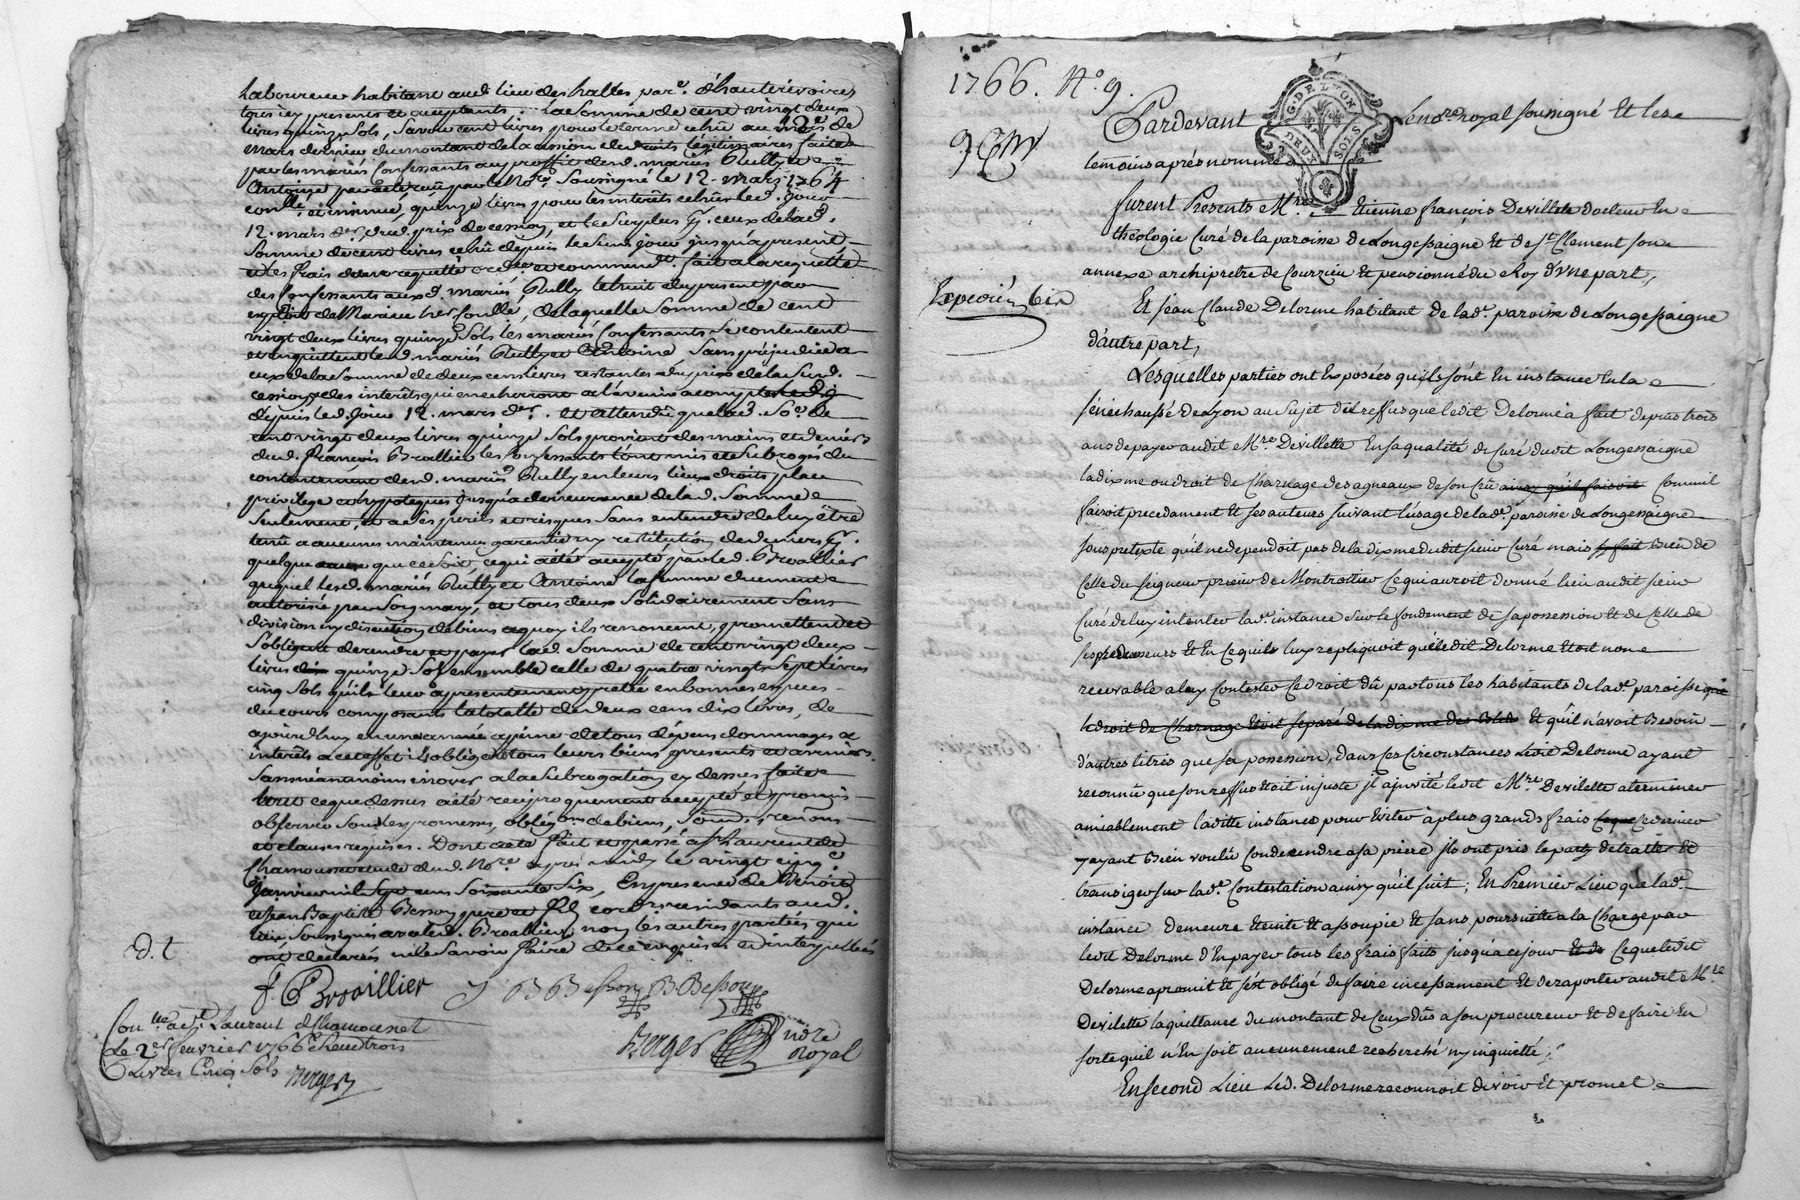 laboureur habitant aud. lieu des halles par.e d'hauterivoires
tous icy presents et acceptants : la somme de cent vingt deux
livres quinze sols, savoir cent livres pour le terme echu au 12e mois de
mars dernier du montant de la cession de droits légitimaires faite
par les mariés Confessants au proffit desd. mariés Rully et
Antoine par acte reçu par le No.re Soussigné le 12. mars 1764
con.llé et insinué, quinze livres pour les intérêts echus led. jour
12. mars der. dud. prix de cession, et le surplus p.r ceux de lad.
somme de cent livres echu depuis led. jour jusqu'apresent
et les frais de la requette et commend.t fait a la requette
des Confessants auxd. mariés Rully le huit du present par
exploit de Marieu h.er Coullé, de laquelle somme de cent
vingt deux livres quinze Sols les mariés Confessants se contentent
et en quittent lesd. mariés Rully et Antoine, Sans préjudice a
eux de la somme de deux cens livres restantes du prix de la susd.
cession et des intérêts qui en echeront a l'avenir a compter
depuis led. jour 12. mars der. et attendu que lad. So.e de
cent vingt deux livres quinze Sols provient des mains et deniers
dud. françois Broallier les Confessants l'ont mis et subrogé du
contentement desd. mariés Rully en leurs lieux droits place
privilege et hypoteques jusqu'a concurrence de lad. Somme
Seulement, et a Ses perils et risques Sans entendre de luy être
tenu a aucunes maintenue garentie ny restitution de deniers p.r
quelque cause que ce soit, ce qui a été accepté par led. Broallier
auquel lesd. mariés Rully et Antoine la femme duement
autorisée par Son mary, et tous deux Solidairement Sans
division ny discution de biens a quoy ils renoncent, promettent et
S'obligent de rendre et payer lad. Somme de cent vingt deux
livres quinze Sols ensemble celle de quatre vingts Sept livres
cinq Sols qu'il leur a presentement prettée en bonnes especes
du cours composants la totalle de deux cens dix livres, de
ajourdhuy en une année a peine de tous dépens dommages et
intérêts a cet effet ils obligent tous leurs biens presents et avenirs
Sans néantmoins innover a la Subrogation cy dessus faite
tout ce que dessus a été reciproquement accepté et promis
observer Sous les promesses, oblig.ons de biens, Soum.s, renon.s
et clauses requises. Dont acte fait et passé a St Laurent de
Chamousset etude dud. No.re apres midy le vingt cinq
janvier mil Sept cens Soixante Six, En presence de Benoit
et Jean Baptiste Besson pere et fils cord.rs residants aud.
lieu Soussignés avec led. Broallier, non les autres parties qui
ont declaré ne le Savoir faire de ce enquises et interpellées
d. t.
f. Broaillier J B Besson B Besson
Berger no.re Royal
Con.llé a St Laurent de Chamousset
Le 2er fevrier 1766 Receu trois
Livres Cinq Sols Berger
1766. N.o 9.
Pardevant Le no.re royal soussigné Et les
temoins aprés nommés
G. DE LYON
DEUX SOLS
furent Presents M.re Etienne françois Devillette docteur En
théologie Curé de la paroisse de Longessaigne Et de St Clement son
annexe archipretre de Courzieu Et pensionné du Roy d'Une part,
Expedié bis
Et Jean Claude Delorme habitant de lad.e paroisse de Longessaigne
d'autre part,
Lesquelles parties ont Exposées qu'ils sont En instance En la
sénéchaussé de Lyon au Sujet du reffus que ledit Delorme a fait depuis trois
ans de payer audit M.re Devillette En sa qualité de Curé dudit Longessaigne
la dixme ou droit de Charnage des agneaux de son Crû ainsy qu'il faisoit Comm'il
faisoit precedament Et ses auteurs suivant l'usage de lad.e paroisse de Longessaigne
sous pretexte qu'il ne dependoit pas de la dixme dudit sieur Curé mais Bien de
Celle du seigneur prieur de Montrottier Ce qui auroit donné lieu audit sieur
Curé de luy intenter lad.e instance sur le fondement de sa possession Et de Celle de
ses predecesseurs Et En Ce qu'il luy repliquoit que ledit Delorme Etoit non
recevable a luy Contester Ce droit dû par tous les habitants de lad.e paroisse que
le droit de Charnage Etoit separé de la dixme des Bleds Et qu'il n'avoit Besoin
d'autres titres que sa possession, dans Ces Circonstances Ledit Delorme ayant
reconnû que son reffus Etoit injuste il a invité ledit M.re Devillette a terminer
amiablement laditte instance pour Eviter à plus grands frais Ce que Ce dernier
y ayant Bien voulû Condessendre a sa priere ils ont pris le party de traiter Et
transiger sur lad.e Contestation ainsy qu'il suit ; En Premier Lieu que lad.e
instance demeure Eteinte Et assoupie Et sans poursuite a la Charge par
ledit Delorme d'En payer tous les frais faits jusqu'a ce jour Et de Ce que ledit
Delorme a promit Et s'est obligé de faire incessament Et de raporter audit M.re
Devillette la quittance du montant de Ceux dûs a son procureur Et de faire En
sorte qu'il n'En soit aucunement recherché ny inquietté ;
En second Lieu Led. Delorme reconnoit devoir Et promet